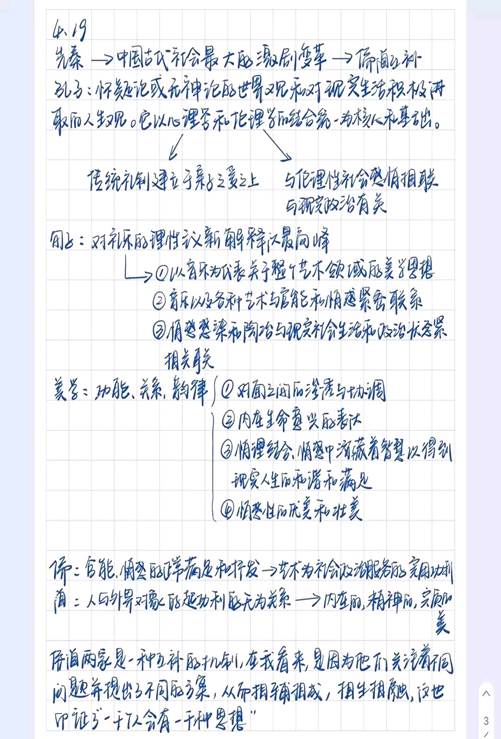 4.19
先秦 → 中国古代社会最大的激剧变革 → 儒道互补
孔子：怀疑论或无神论的世界观和对现实生活积极进
取的人生观。它以心理学和伦理学的结合统一为核心和基础。
传统礼制建立于亲子之爱之上 与伦理性社会感情相联
与现实政治有关
荀子：对礼乐的理性主义新解释以最高峰
①以音乐为代表关于整个艺术领域的美学思想
②音乐以及各种艺术与官能和情感紧密联系
③情感感染和陶冶与现实社会生活和政治状态紧
相关联
美学：功能、关系、韵律 ①对面之间的渗透与协调
②内在生命意兴的表达
③情理结合、情感中潜藏着智慧以得到
现实人生的和谐和满足
④情感性的优美和壮美
儒：官能、情感的正常满足和抒发→艺术为社会政治服务的实用功利
道：人与外界对象的超功利的无为关系 → 内在的，精神的，实质的
美
儒道两家是一种互补的机制，在我看来，是因为他们关注着不同
问题并提出了不同的方案，从而相辅相成，相生相融，这也
印证了一千个人会有一千种思想"
3